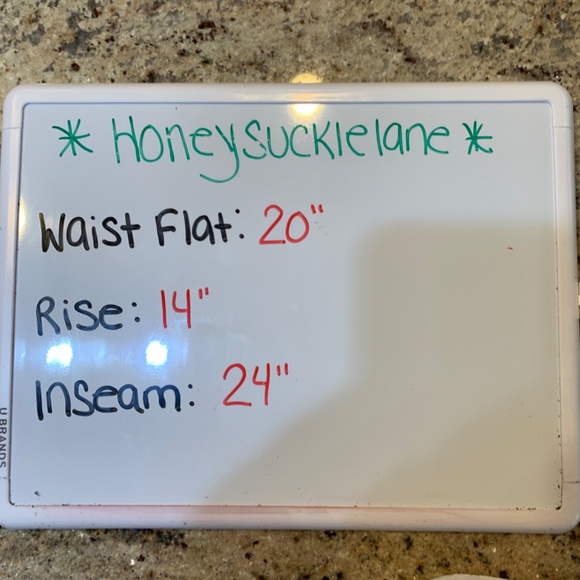 * Honeysucklelane *
Waist Flat: 20"
Rise: 14"
Inseam: 24"
U BRANDS